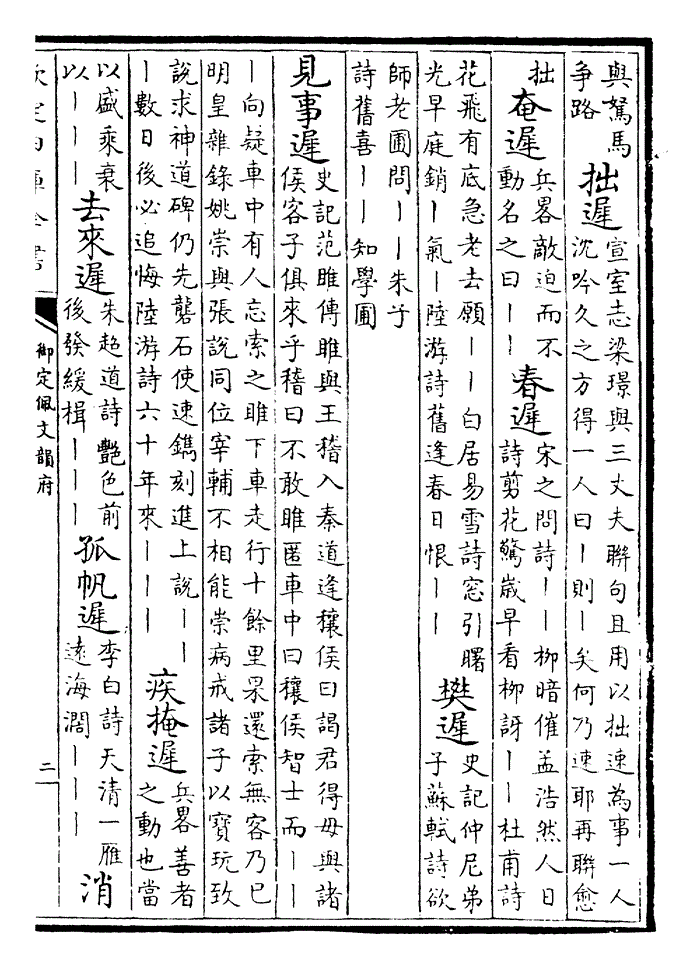 與駑馬
争路
拙遲
宣室志梁璟與三丈夫聯句且用以拙速為事一人
沈吟久之方得一人曰丨則丨矣何乃速耶再聯愈
拙
奄遲
兵畧敵迫而不
動名之曰丨丨
春遲
宋之問詩丨丨柳暗催孟浩然人日
詩剪花驚歲早看柳訝丨丨杜甫詩
花飛有底急老去願丨丨白居易雪詩窓引曙
光早庭銷丨氣丨陸游詩舊逢春日恨丨丨
樊遲
史記仲尼弟
子蘇軾詩欲
師老圃問丨丨朱子
詩舊喜丨丨知學圃
見事遲
史記范雎傳雎與王稽入秦道逢穰侯曰謁君得毋與諸
侯客子俱來乎稽曰不敢雎匿車中曰穰侯智士而丨丨
丨向疑車中有人忘索之雎下車走行十餘里果還索無客乃已
明皇雜錄姚崇與張說同位宰輔不相能崇病戒諸子以寳玩致
說求神道碑仍先礱石使速鐫刻進上說丨丨
丨數日後必追悔陸游詩六十年來丨丨丨
疾掩遲
兵畧善者
之動也當
以盛乘衰
以丨丨丨
去來遲
朱超道詩艷色前
後發緩楫丨丨丨
孤帆遲
李白詩天清一雁
遠海濶丨丨丨
消
欽定四庫全書
御定佩文韻府
二